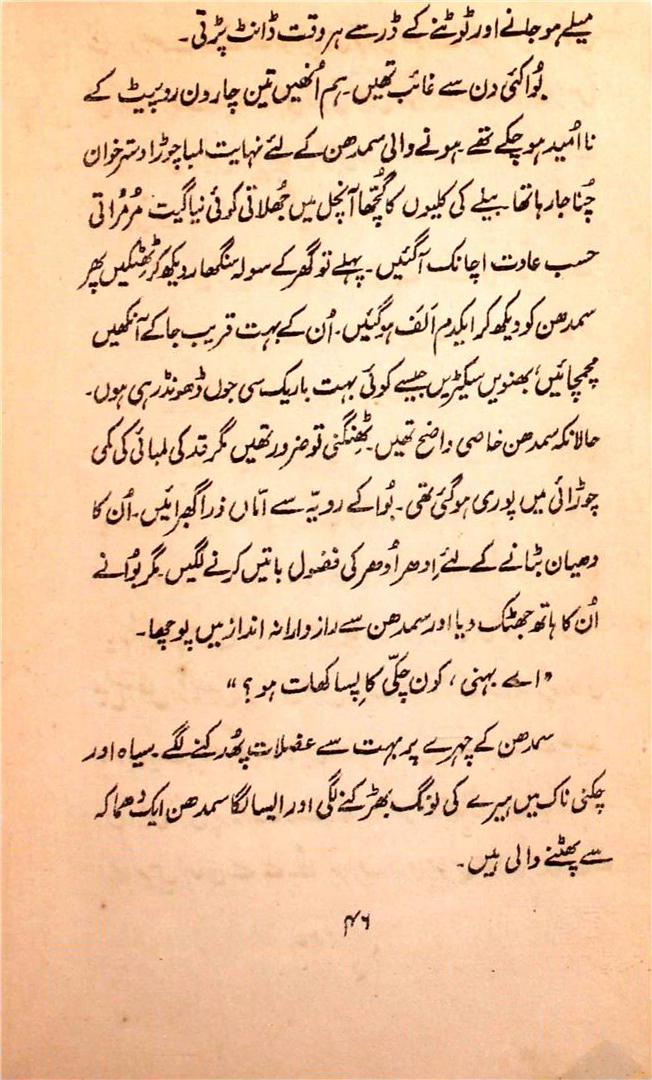 میلے ہو جانے اور ٹوٹنے کے ڈر سے ہر وقت ڈانٹ پڑتی۔
بُوا کئی دن سے غائب تھیں۔ ہم اُنھیں تین چار دن رو پیٹ کے
نا اُمید ہو چکے تھے۔ ہونے والی سمدھن کے لئے نہایت لمبا چوڑا دسترخوان
چُنا جا رہا تھا۔ بیلے کی کلیوں کا گُچھا آنچل میں جُھلاتی کوئی نیا گیت مُرمُراتی
حسب عادت اچانک آگئیں۔ پہلے تو گھر کے سولہ سنگھار دیکھ کر ٹِھٹکیں پھر
سمدھن کو دیکھ کر ایکدم اَلَف ہوگئیں۔ اُن کے بہت قریب جا کے آنکھیں
مچمچائیں، بھنویں سیکڑیں جیسے کوئی بہت باریک سی جوں ڈھونڈ رہی ہوں۔
حالانکہ سمدھن خاصی واضح تھیں۔ ٹھِنگنی تو ضرور تھیں مگر قد کی لمبائی کی کمی
چوڑائی میں پوری ہوگئی تھی۔ بُوا کے رویّہ سے اَمّاں ذرا گھبرائیں۔ اُن کا
دھیان بٹانے کے لئے اِدھر اُدھر کی فضول باتیں کرنے لگیں۔ مگر بُوا نے
اُن کا ہاتھ جھٹک دیا اور سمدھن سے راز دارانہ انداز میں پوچھا۔
”اے بہنی، کون چکّی کا پِسا کھات ہو؟“
سمدھن کے چہرے پر بہت سے عضلات پھُدکنے لگے۔ سیاہ اور
چکنی ناک میں ہیرے کی لونگ بھڑکنے لگی اور ایسا لگا سمدھن ایک دھماکہ
سے پھٹنے والی ہیں۔
۴۶